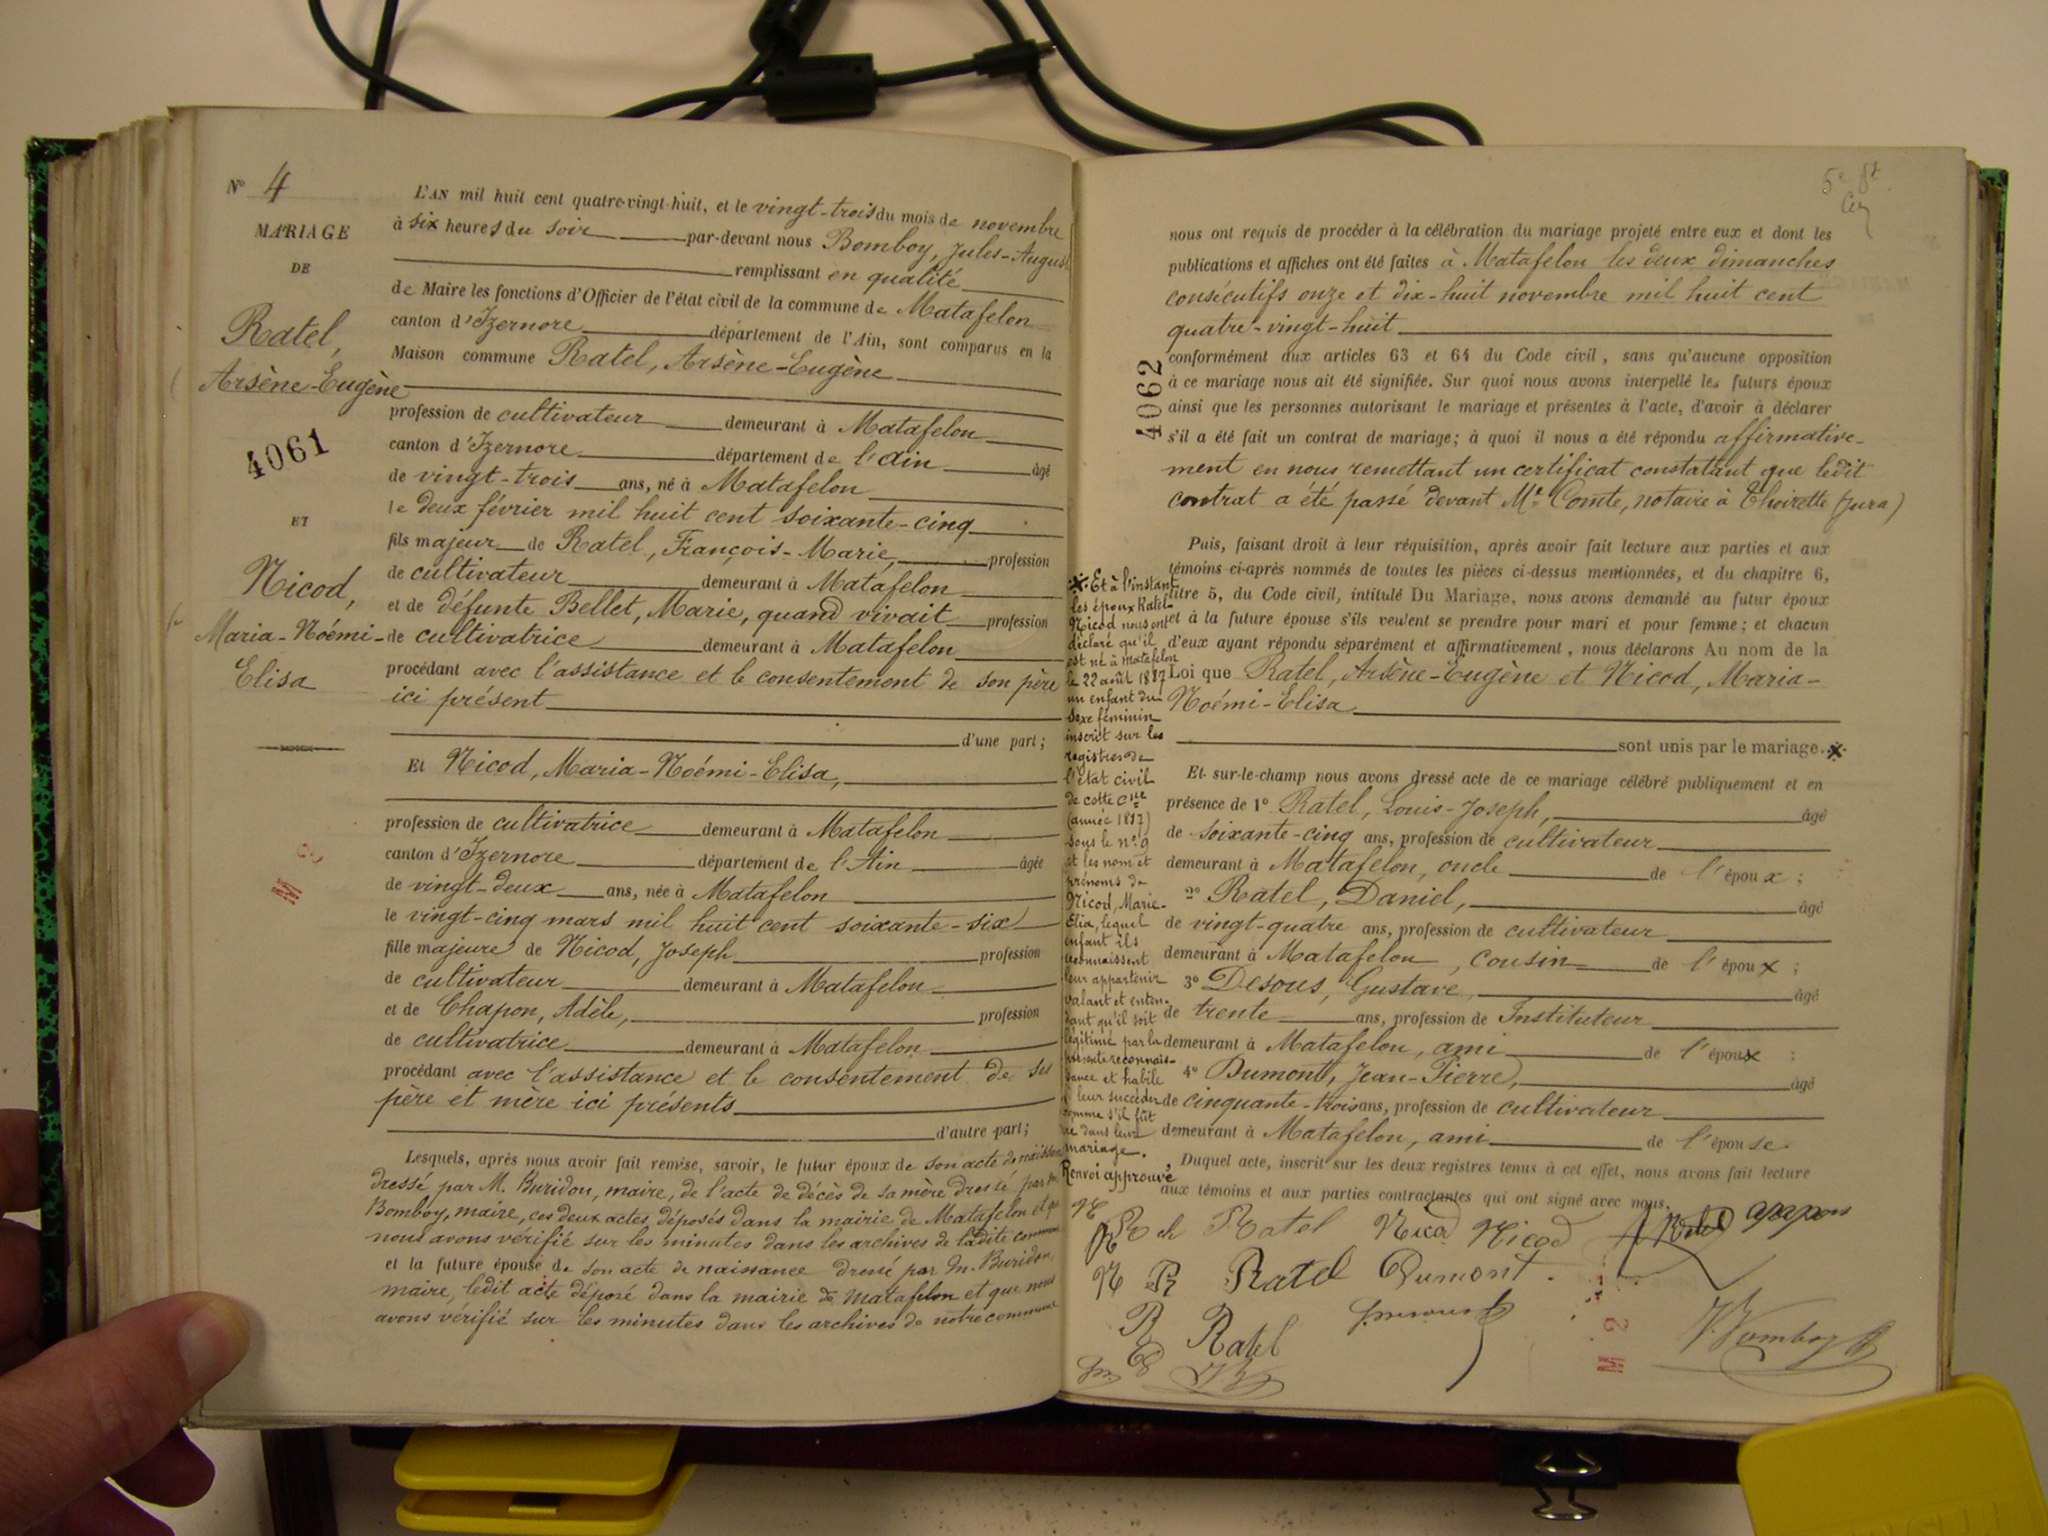 N° 4
MARIAGE
DE
Ratel,
Arsène-Eugène
4061
ET
Nicod,
Maria-Noémi-
Elisa
M 2
L'AN mil huit cent quatre-vingt-huit, et le vingt-trois du mois de novembre
à six heures du soir par-devant nous Bomboy, Jules-August
remplissant en qualité
de Maire les fonctions d'Officier de l'état civil de la commune de Matafelon
canton d'Izernore département de l'Ain, sont comparus en la
Maison commune Ratel, Arsène-Eugène
profession de cultivateur demeurant à Matafelon
canton d'Izernore département de l'Ain âgé
de vingt-trois ans, né à Matafelon
le deux février mil huit cent soixante-cinq
fils majeur de Ratel, François-Marie, profession
de cultivateur demeurant à Matafelon
et de défunte Bellet, Marie, quand vivait profession
de cultivatrice demeurant à Matafelon
procédant avec l'assistance et le consentement de son père
ici présent
d'une part;
Et Nicod, Maria-Noémi-Elisa,
profession de cultivatrice demeurant à Matafelon
canton d'Izernore département de l'Ain âgée
de vingt-deux ans, née à Matafelon
le vingt-cinq mars mil huit cent soixante-six
fille majeure de Nicod, Joseph profession
de cultivateur demeurant à Matafelon
et de Chapon, Adèle, profession
de cultivatrice demeurant à Matafelon
procédant avec l'assistance et le consentement de ses
père et mère ici présents
d'autre part;
Lesquels, après nous avoir fait remise, savoir, le futur époux de son acte de naissan
dressé par M. Buridon, maire, de l'acte de décès de sa mère dressé par M.
Bomboy, maire, ces deux actes déposés dans la mairie de Matafelon et que
nous avons vérifié sur les minutes dans les archives de ladite commune
et la future épouse de son acte de naissance dressé par M. Buridon,
maire, ledit acte déposé dans la mairie de Matafelon et que nous
avons vérifié sur les minutes dans les archives de notre commune
nous ont requis de procéder à la célébration du mariage projeté entre eux et dont les
publications et affiches ont été faites à Matafelon les deux dimanches
consécutifs onze et dix-huit novembre mil huit cent
quatre-vingt-huit
4062
conformément aux articles 63 et 64 du Code civil, sans qu'aucune opposition
à ce mariage nous ait été signifiée. Sur quoi nous avons interpellé les futurs époux
ainsi que les personnes autorisant le mariage et présentes à l'acte, d'avoir à déclarer
s'il a été fait un contrat de mariage; à quoi il nous a été répondu affirmative-
ment en nous remettant un certificat constatant que ledit
contrat a été passé devant Me Comte, notaire à Thoirette (Jura)
Puis, faisant droit à leur réquisition, après avoir fait lecture aux parties et aux
témoins ci-après nommés de toutes les pièces ci-dessus mentionnées, et du chapitre 6,
titre 5, du Code civil, intitulé Du Mariage, nous avons demandé au futur époux
et à la future épouse s'ils veulent se prendre pour mari et pour femme; et chacun
d'eux ayant répondu séparément et affirmativement, nous déclarons Au nom de la
Loi que Ratel, Arsène-Eugène et Nicod, Maria-
Noémi-Elisa
sont unis par le mariage.
Et sur-le-champ nous avons dressé acte de ce mariage célébré publiquement et en
présence de 1° Ratel, Louis-Joseph, âgé
de soixante-cinq ans, profession de cultivateur
demeurant à Matafelon, oncle de l'époux;
2° Ratel, Daniel, âgé
de vingt-quatre ans, profession de cultivateur
demeurant à Matafelon, cousin de l'époux;
3° Desous, Gustave, âgé
de trente ans, profession de Instituteur
demeurant à Matafelon, ami de l'époux
4° Dumont, Jean-Pierre, âgé
de cinquante-trois ans, profession de cultivateur
demeurant à Matafelon, ami de l'épouse
Duquel acte, inscrit sur les deux registres tenus à cet effet, nous avons fait lecture
aux témoins et aux parties contractantes qui ont signé avec nous.
Et à l'instant
les époux Ratel-
Nicod nous ont
déclaré qu'il
est né à Matafelon
le 22 août 1887
un enfant du
sexe féminin
inscrit sur les
registres de
l'état civil
de cette cne
(année 1887)
sous le n° 9
et les nom et
prénoms de
Nicod, Marie-
Elia, lequel
enfant ils
reconnaissent
leur appartenir
valant et enten-
dant qu'il soit
légitimé par la
présente reconnais-
sance et habile
à leur succéder
comme s'il fût
né dans leur
mariage.
Renvoi approuvé
Ratel Nicod Nicod
N R Ratel Dumont.
R Ratel
J. Bomboy
M 2